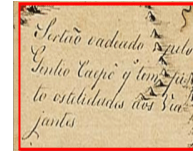 Sertão vadeado pelo
Gentio Caipó q' tem feis
to ostilidades aos Via
jantes